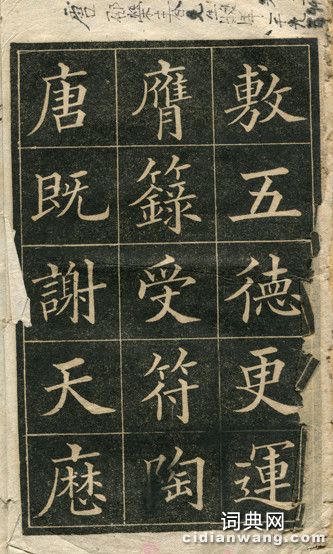 敷五徳更運
膺籙受符陶
唐既謝天厯
词典网
cidianwang.com